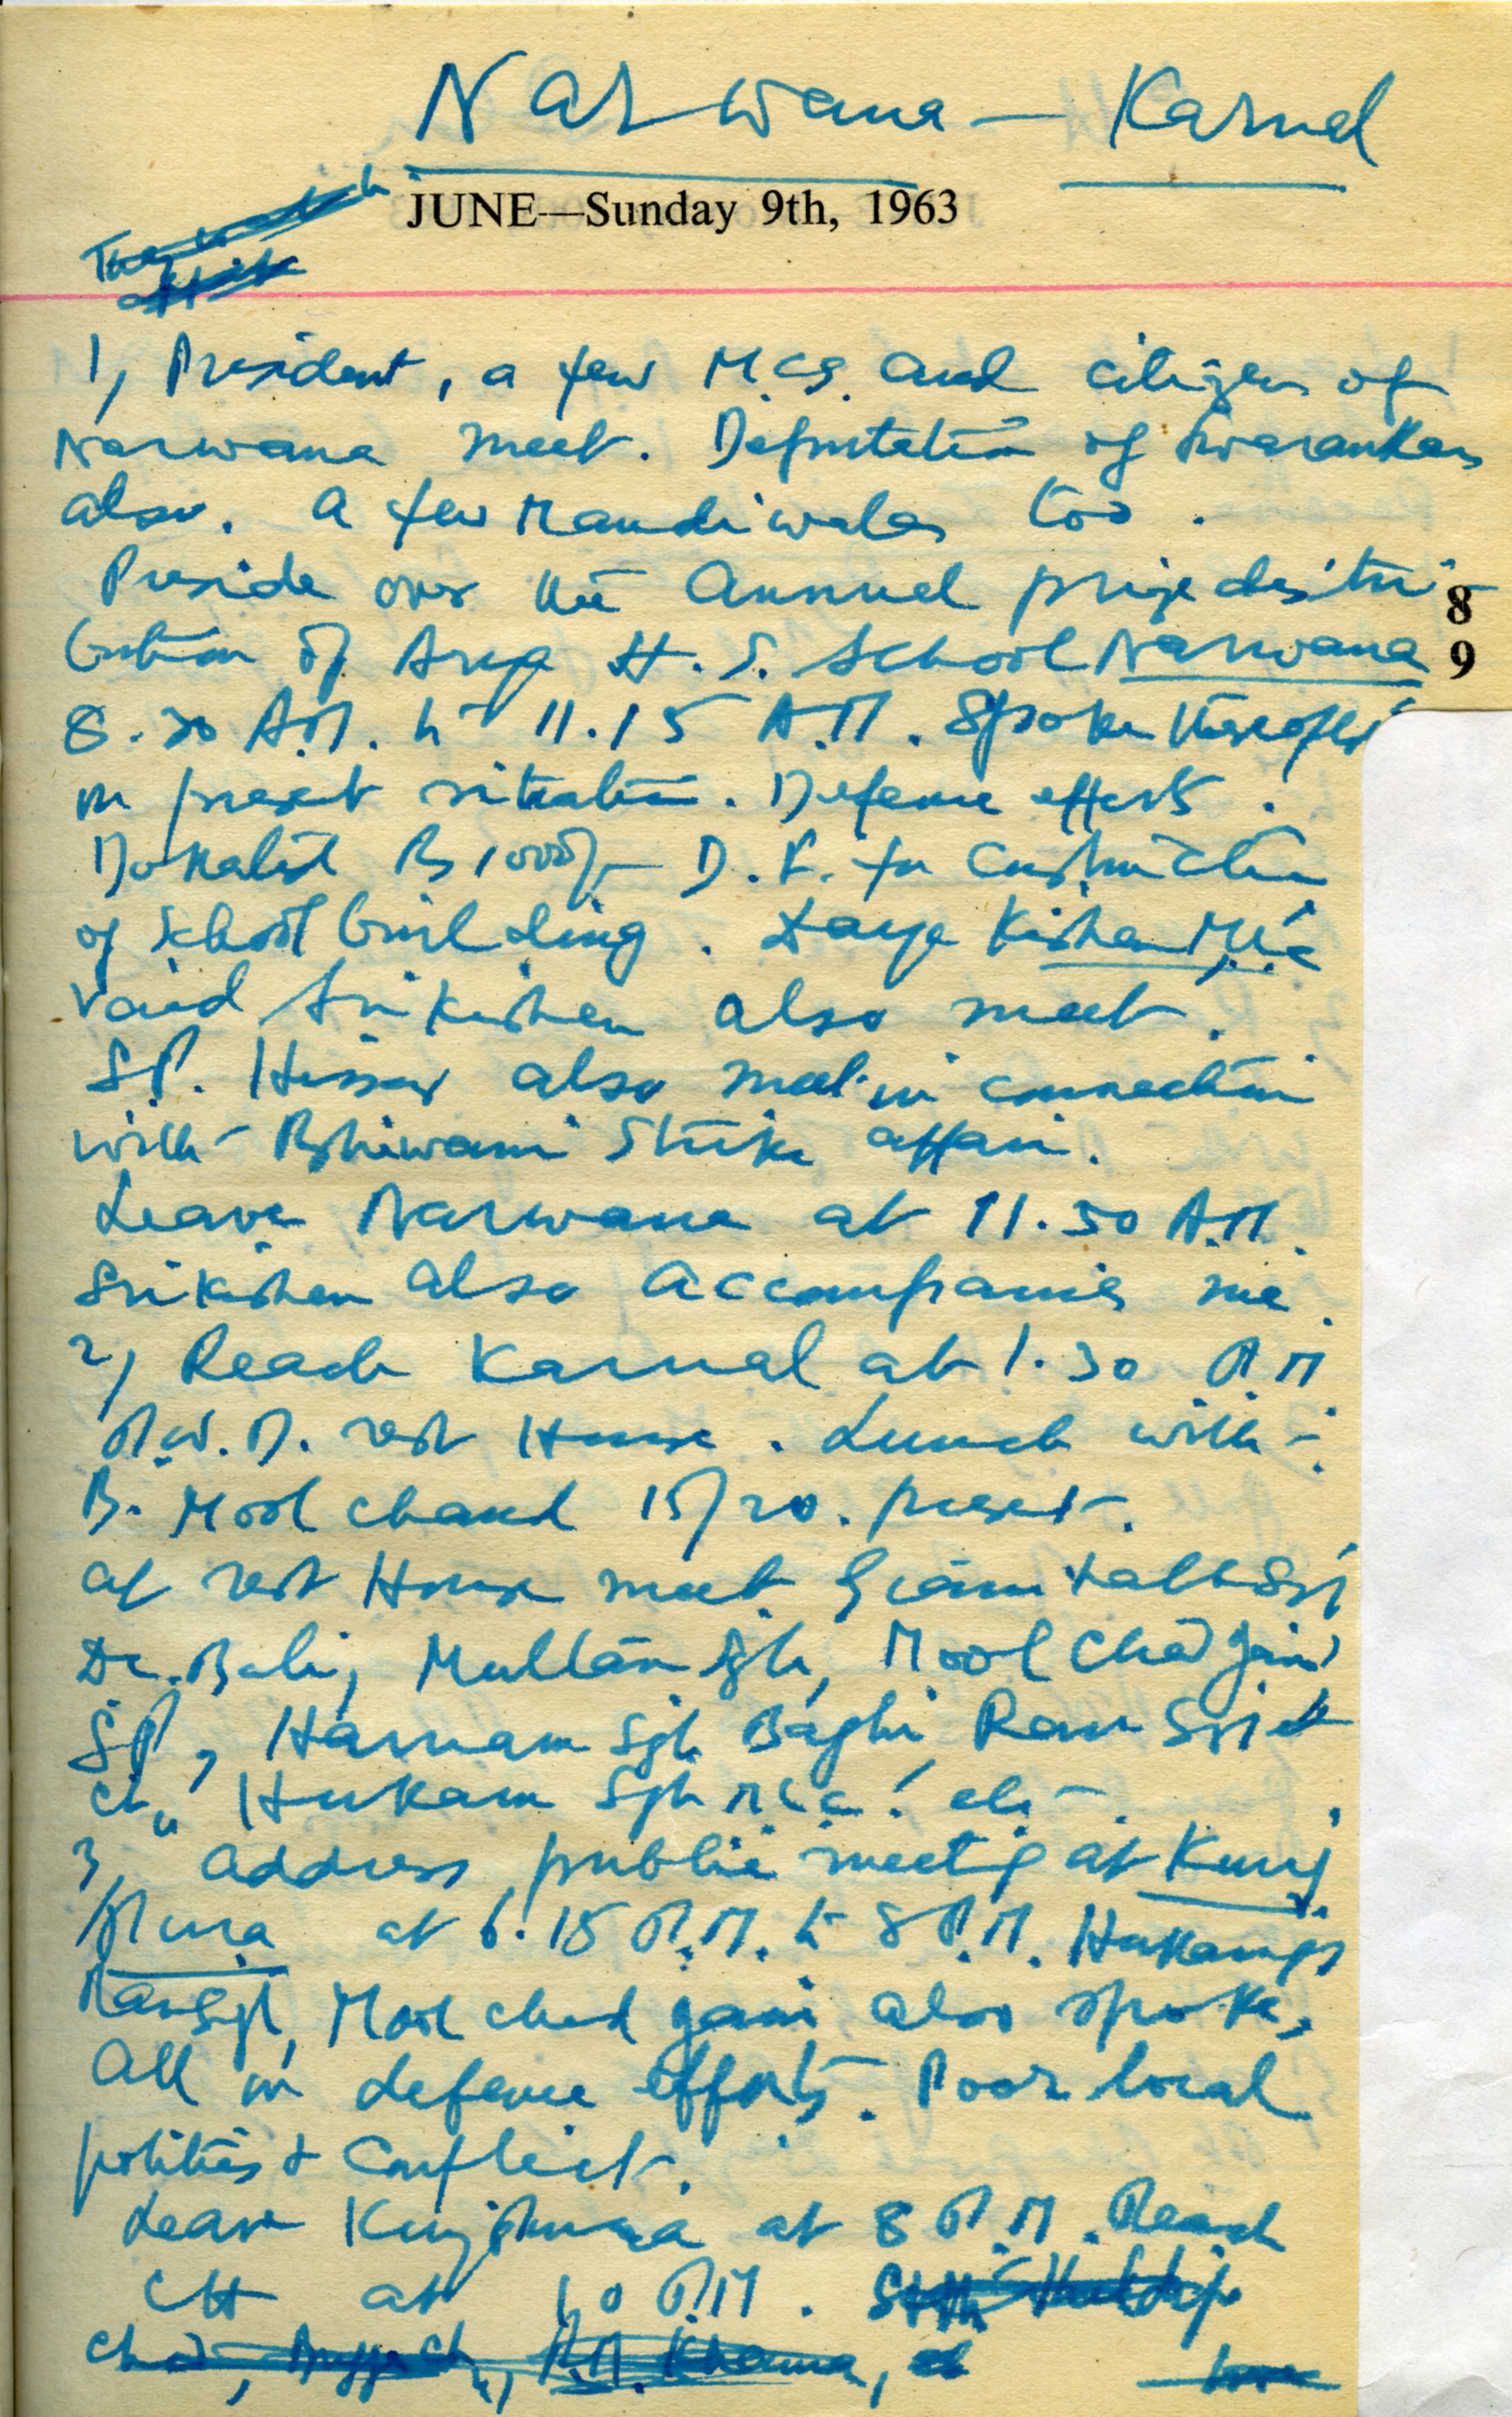 Narwana — Karnal
JUNE—Sunday 9th, 1963
1, President, a few M.Cs. and citizens of
Narwana meet. Deputation of Swarankars
also. A few Mandiwalas too.
Preside over the Annual prize distri-
8
bution of Arya H.S. School Narwana
9
8.30 A.M. to 11.15 A.M. Spoke there
on present situation. Defence efforts.
Donated Rs 1000/- D.F. for construction
of School building. Daya Kishan
Vaid Srikishen also meet.
S.P. Hissar also meet in connection
with Bhiwani Strike affair.
Leave Narwana at 11.30 A.M.
Srikishen also accompanies me.
2, Reach Karnal at 1.30 P.M
P.W.D. rest House. Lunch with
B. Mool Chand 15/20. present.
at rest House meet Giani
Dr. Bali, Multan Sgh, Mool Chad Jain
SP, Harnam Sgh Baghi, Ram
Ch., Hukam Sgh M.L.C. etc.
3, Address public meeting at Kunj
Pura at 6.15 P.M. to 8 P.M. Hukam
Ram Sgh, Mool Chad Jain also spoke,
All on defence efforts. Poor local
politics & Conflict.
Leave Kunjpura at 8 P.M. Reach
CH at 10 P.M.
Khanna,